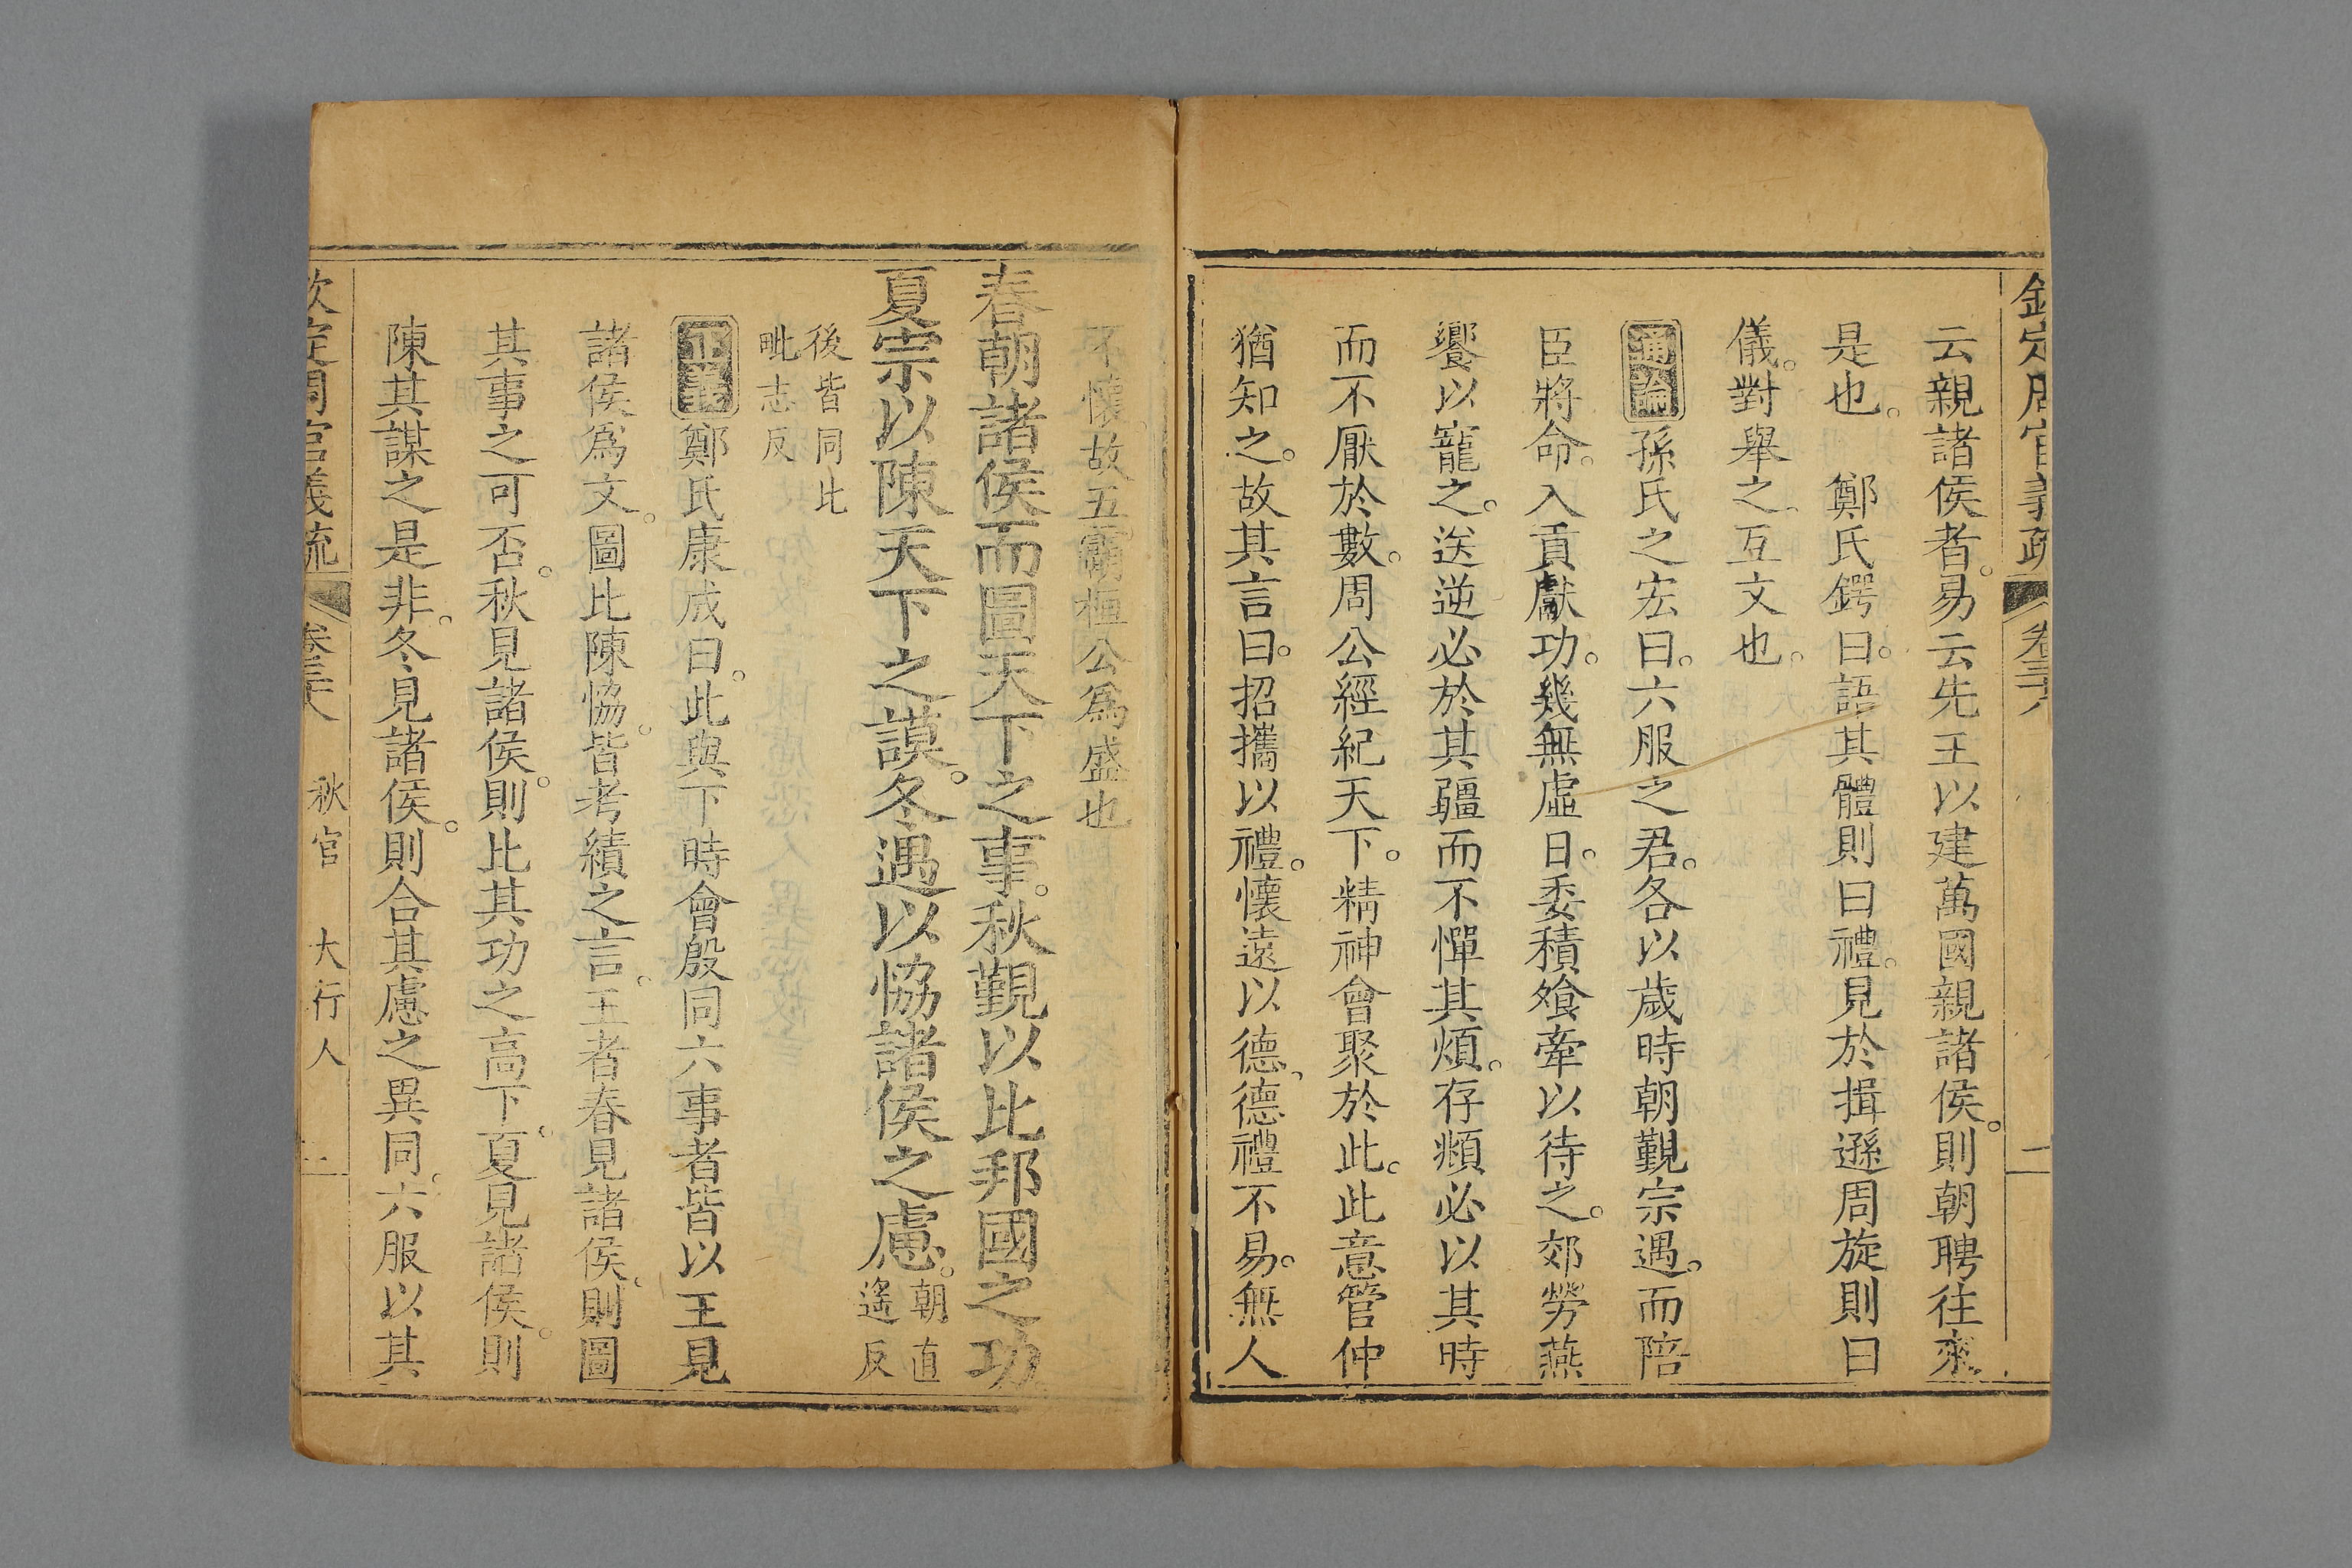 欽定周官義疏 卷三十八 二
云親諸侯者。易云先王以建萬國親諸侯。則朝聘往來。
是也。 鄭氏鍔曰。語其體則曰禮。見於揖遜周旋則曰
儀。對舉之。互文也。
通論 孫氏之宏曰。六服之君。各以歲時朝覲宗遇。而陪
臣將命。入貢獻功。幾無虛日。委積飧牽以待之。郊勞燕
饗以寵之。送逆必於其疆而不憚其煩。存頫必以其時
而不厭於數。周公經紀天下。精神會聚於此。此意管仲
猶知之。故其言曰。招攜以禮。懷遠以德。德禮不易。無人
不懷。故五霸桓公為盛也
春朝諸侯而圖天下之事。秋覲以比邦國之功
夏宗以陳天下之謨。冬遇以恊諸侯之慮。朝直
遙反
後皆同比
毗志反
正義 鄭氏康成曰。此與下時會殷同六事者皆以王見
諸侯為文。圖比陳恊。皆考績之言。王者春見諸侯。則圖
其事之可否。秋見諸侯。則比其功之高下。夏見諸侯。則
陳其謀之是非。冬見諸侯。則合其慮之異同。六服以其
欽定周官義疏 卷三十八 秋官 大行人 二